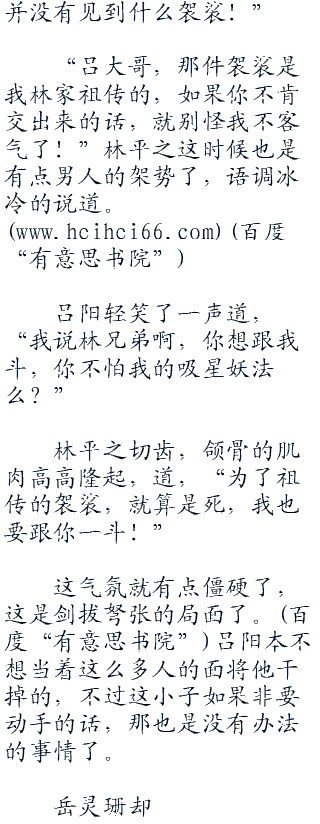 并没有见到什么袈裟！”
“吕大哥，那件袈裟是
我林家祖传的，如果你不肯
交出来的话，就别怪我不客
气了！”林平之这时候也是
有点男人的架势了，语调冰
冷的说道。
(www.hcihci66.com)(百度
“有意思书院”)
吕阳轻笑了一声道，
“我说林兄弟啊，你想跟我
斗，你不怕我的吸星妖法
么？”
林平之切齿，颌骨的肌
肉高高隆起，道，“为了祖
传的袈裟，就算是死，我也
要跟你一斗！”
这气氛就有点僵硬了，
这是剑拔弩张的局面了。(百
度“有意思书院”)吕阳本不
想当着这么多人的面将他干
掉的，不过这小子如果非要
动手的话，那也是没有办法
的事情了。
岳灵珊却